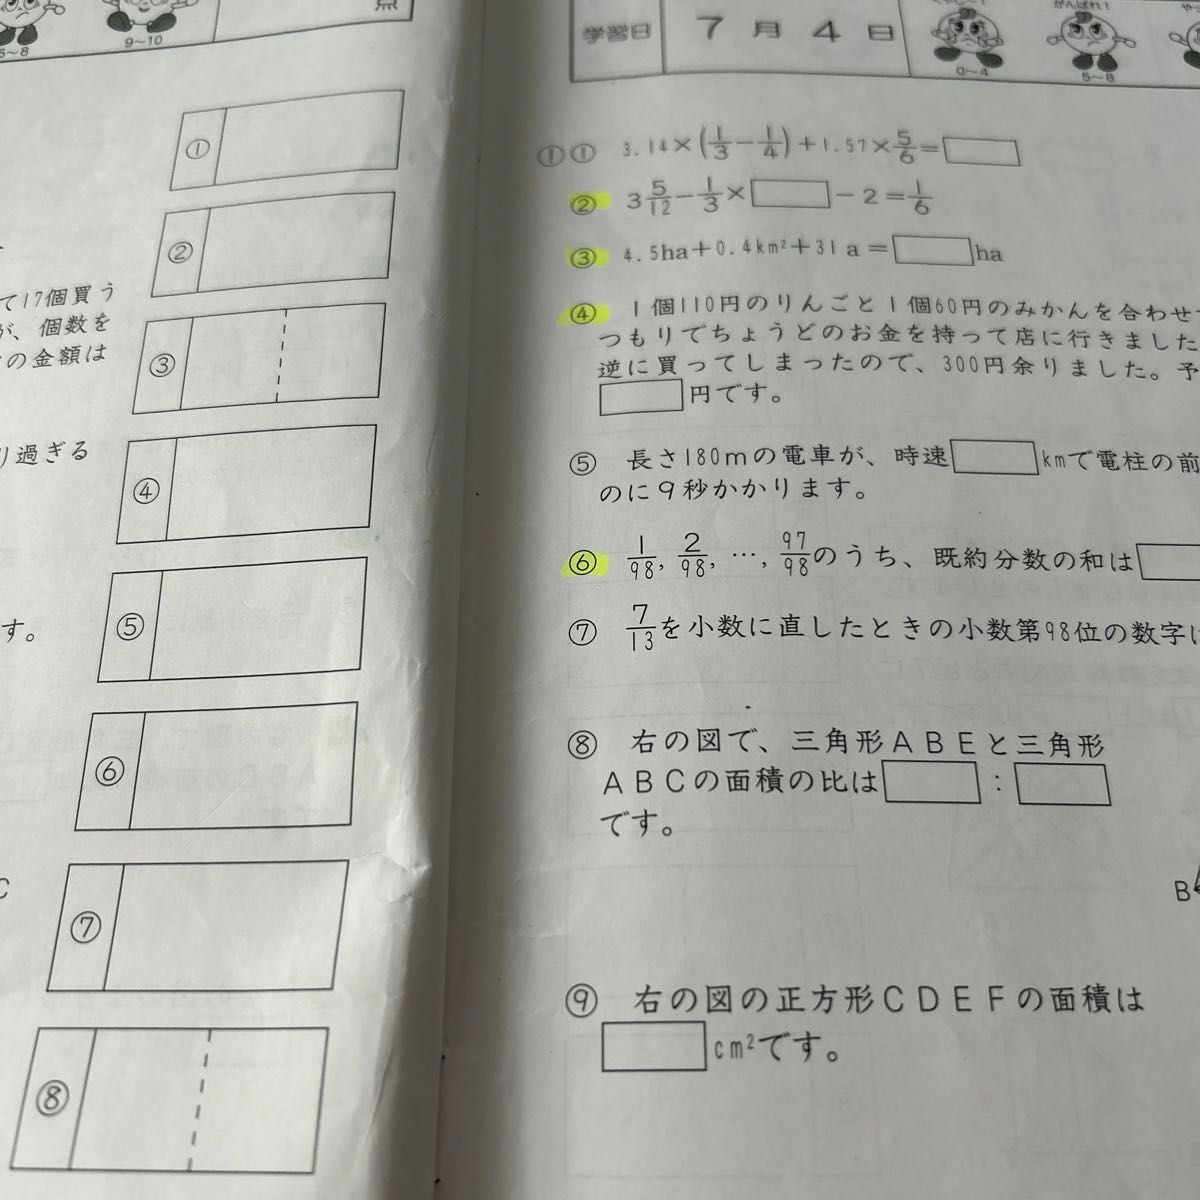 点
5~8
9~10
①
②
て17個買う
が、個数を
の金額は
③
り過ぎる
④
⑤
す。
⑥
⑦
C
⑧
学習日 7月4日
0~4
がんばれ!
5~8
①① 3.14×(1/3−1/4)+1.57×5/6=
② 3 5/12−1/3× −2=1/6
③ 4.5ha+0.4km²+31a= ha
④ 1個110円のりんごと1個60円のみかんを合わせ
つもりでちょうどのお金を持って店に行きました
逆に買ってしまったので、300円余りました。予
円です。
⑤ 長さ180mの電車が、時速 kmで電柱の前
のに9秒かかります。
⑥ 1/98, 2/98, …, 97/98のうち、既約分数の和は
⑦ 7/13を小数に直したときの小数第98位の数字
⑧ 右の図で、三角形ABEと三角形
ABCの面積の比は :
です。
B
⑨ 右の図の正方形CDEFの面積は
cm²です。